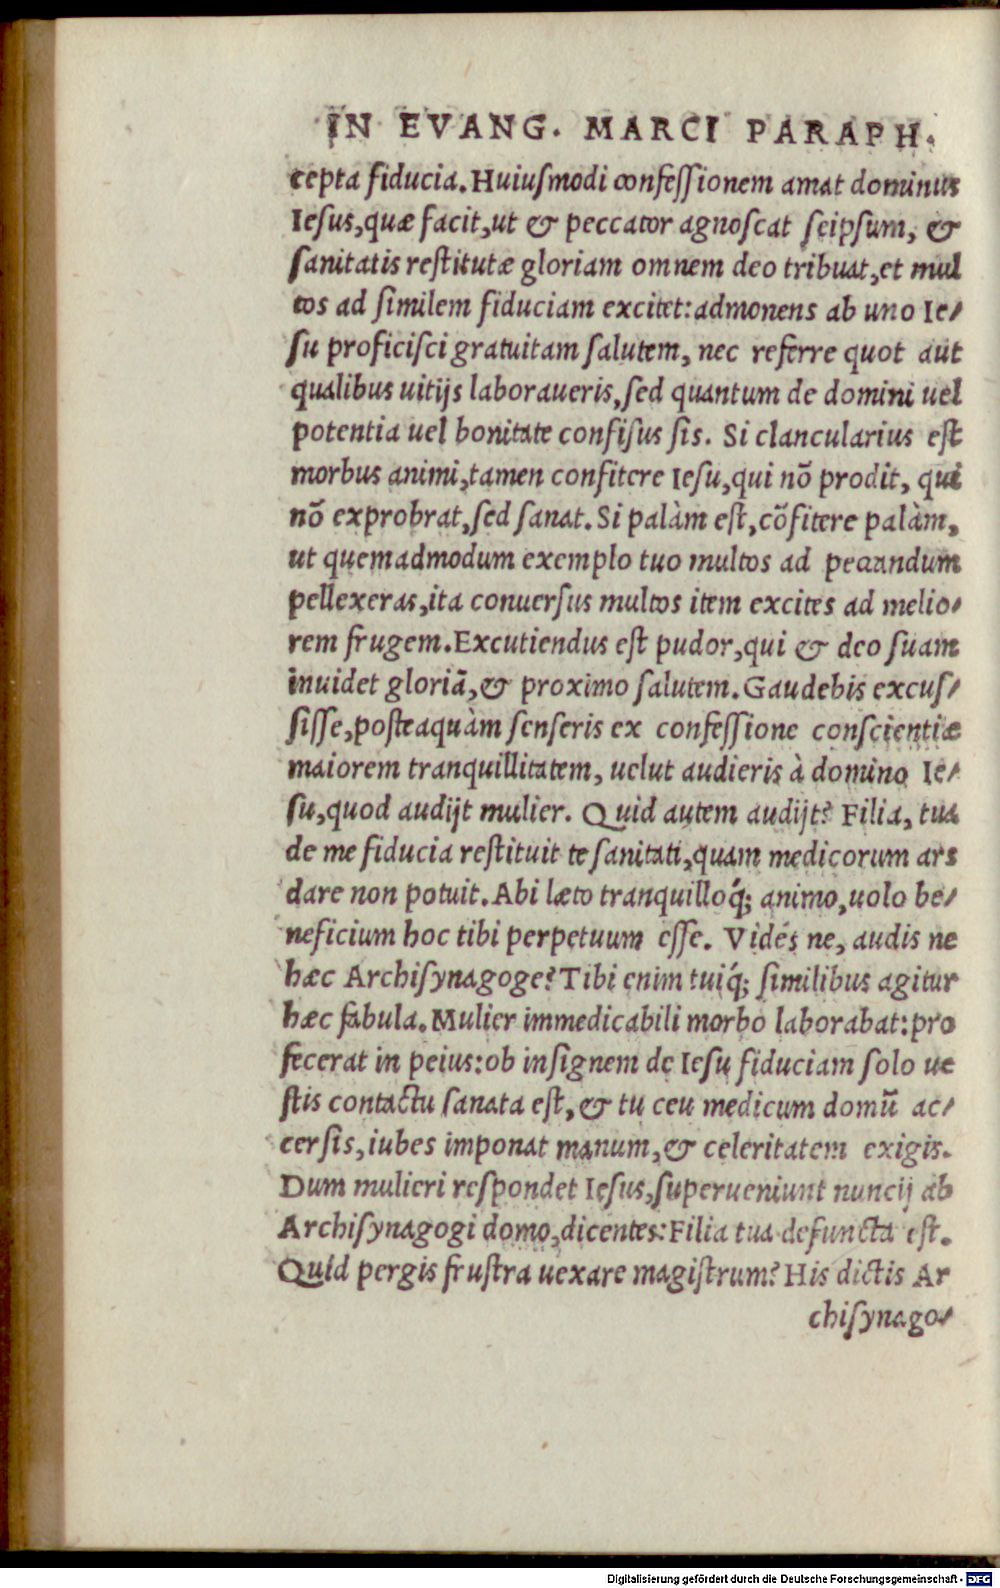 IN EVANG. MARCI PARAPH.
cepta fiducia. Huiuſmodi confeſſionem amat dominus
Ieſus, quæ facit, ut & peccator agnoſcat ſeipſum, &
ſanitatis reſtitutæ gloriam omnem deo tribuat, et mul
tos ad ſimilem fiduciam excitet: admonens ab uno Ie/
ſu proficiſci gratuitam ſalutem, nec referre quot aut
qualibus uitijs laboraueris, ſed quantum de domini uel
potentia uel bonitate confiſus ſis. Si clancularius eſt
morbus animi, tamen confitere Ieſu, qui nõ prodit, qui
nõ exprobrat, ſed ſanat. Si palàm eſt, cõfitere palàm,
ut quemadmodum exemplo tuo multos ad peccandum
pellexeras, ita conuerſus multos item excites ad melio/
rem frugem. Excutiendus eſt pudor, qui & deo ſuam
inuidet gloriã, & proximo ſalutem. Gaudebis excuſ/
ſiſſe, poſteaquàm ſenſeris ex confeſſione conſcientiæ
maiorem tranquillitatem, uelut audieris à domino Ie/
ſu, quod audijt mulier. Quid autem audijt? Filia, tua
de me fiducia reſtituit te ſanitati, quam medicorum ars
dare non potuit. Abi læto tranquilloq́; animo, uolo be/
neficium hoc tibi perpetuum eſſe. Vidés ne, audis ne
hæc Archiſynagoge? Tibi enim tuiq́; ſimilibus agitur
hæc fabula. Mulier immedicabili morbo laborabat: pro
fecerat in peius: ob inſignem de Ieſu fiduciam ſolo ue
ſtis contactu ſanata eſt, & tu ceu medicum domũ ac/
cerſis, iubes imponat manum, & celeritatem exigis.
Dum mulieri reſpondet Ieſus, ſuperueniunt nuncij ab
Archiſynagogi domo, dicentes: Filia tua defuncta eſt.
Quid pergis fruſtra uexare magiſtrum? His dictis Ar
chiſynago/
Digitalisierung gefördert durch die Deutsche Forschungsgemeinschaft - DFG